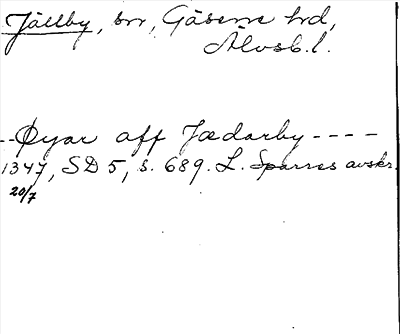 Jällby, sn, Gäsene hrd,
Älvsb. l.
-- Öyar aff Jædarby ----
1347, SD 5, s. 689. L. Sparres avskr.
20/7